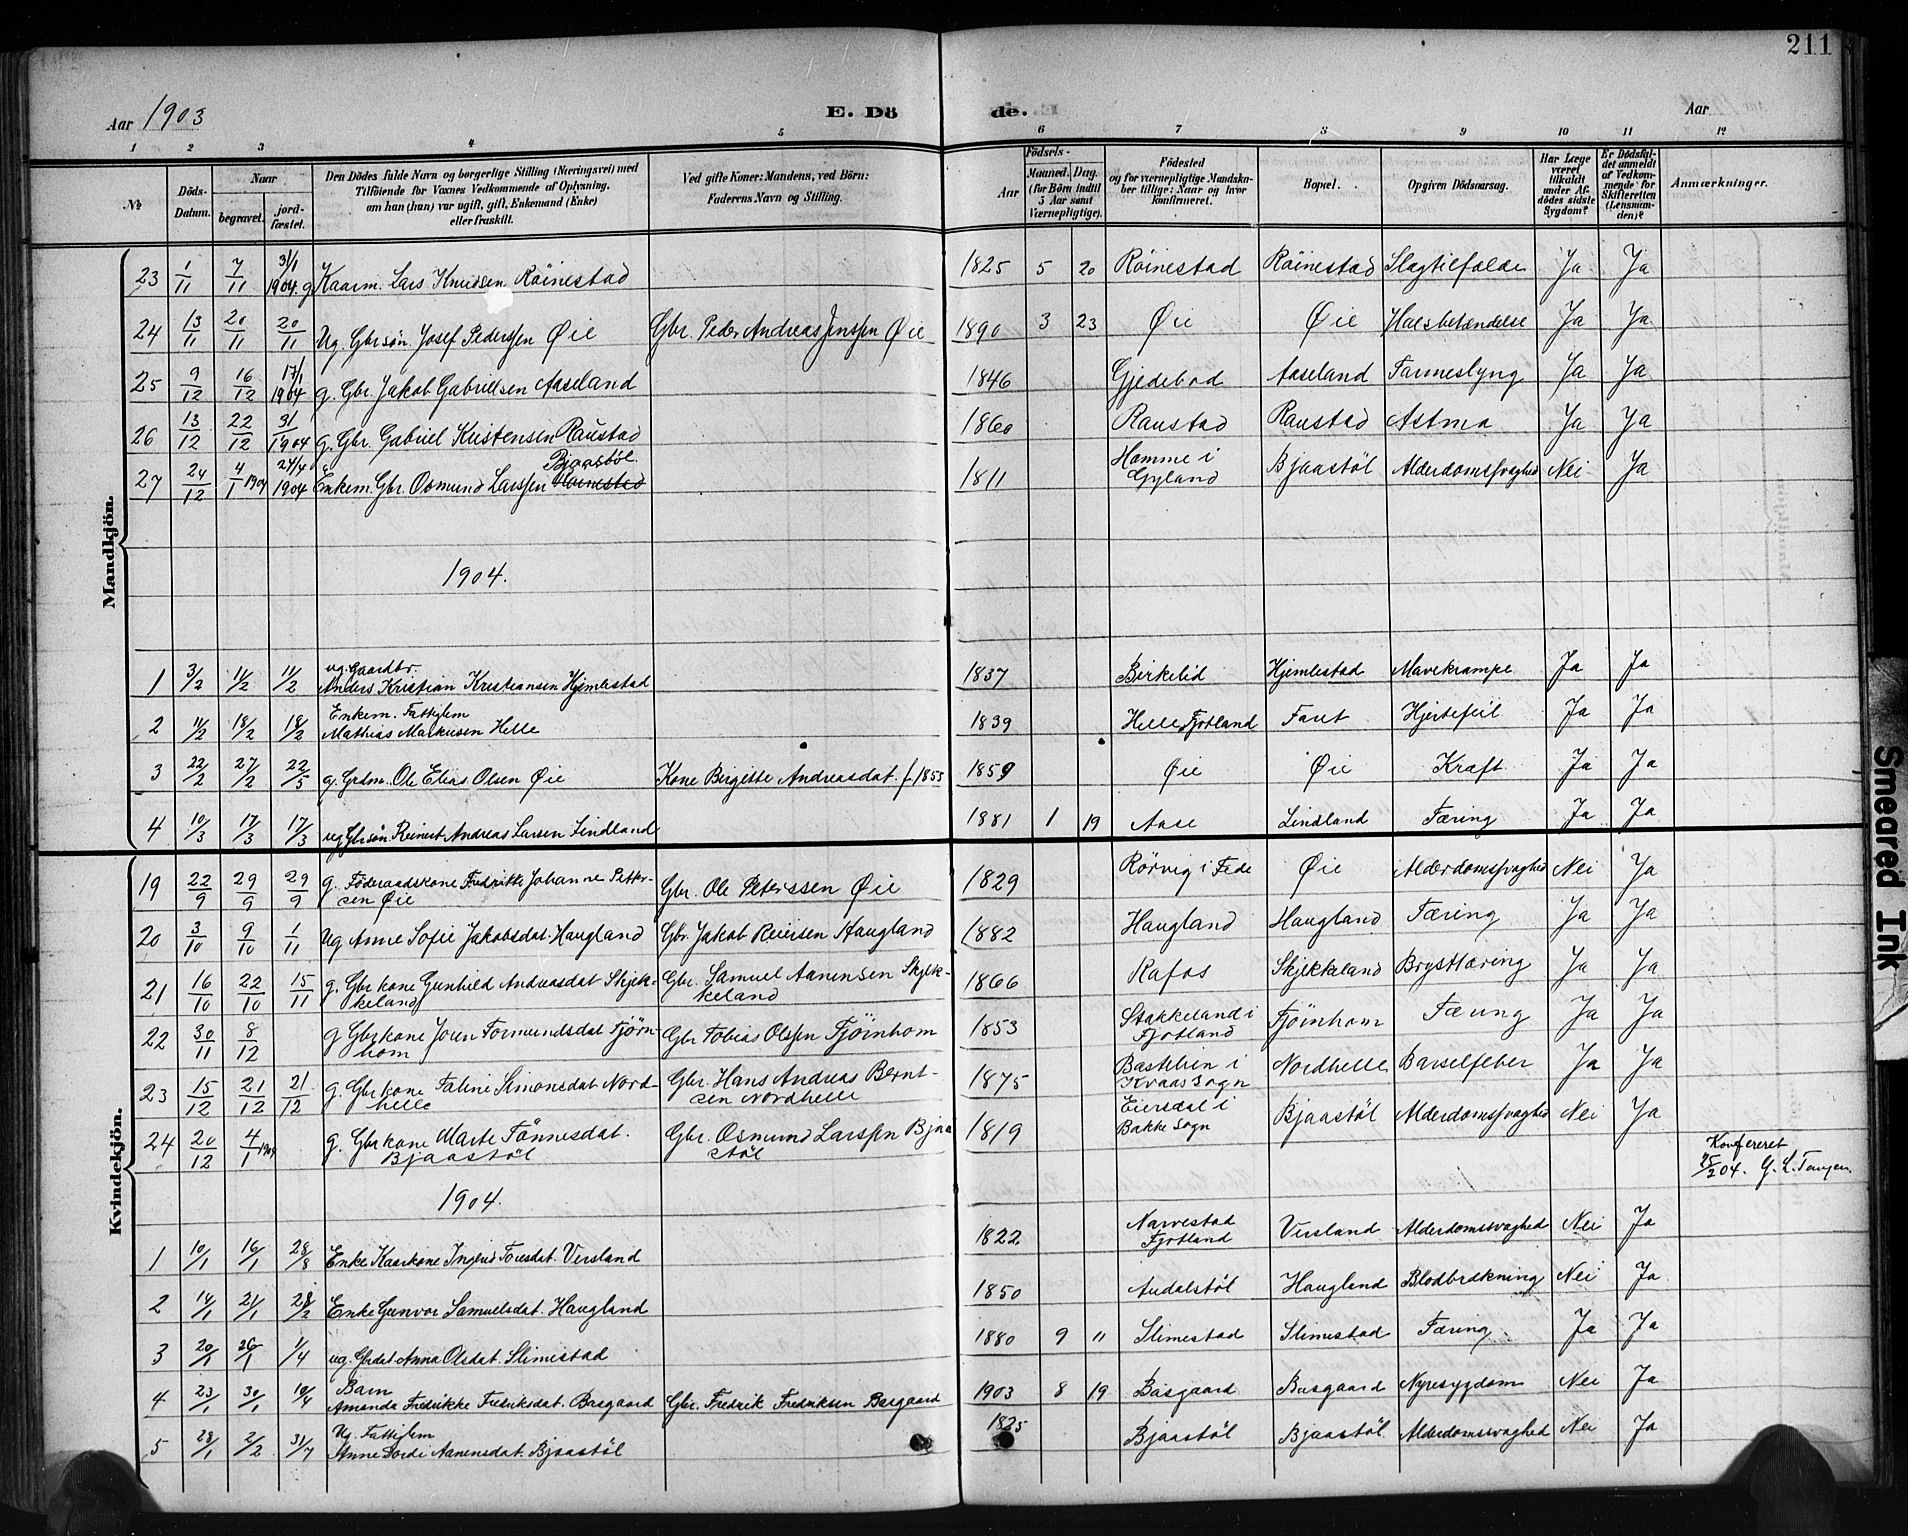 211
Aar 1903 E. Dö de. Aar
1 2 3 4 5 6 7 8 9 10 11 12
№ Döds-Datum. Naar begravet. jord-fæstet. Den Dödes fulde Navn og borgerlige Stilling (Næringsvei) med Tilföiende for Voxnes Vedkommende af Oplysning, om han (hun) var ugift, gift, Enkemand (Enke) eller fraskilt. Ved gifte Koner: Mandens, ved Börn: Faderens Navn og Stilling. Födsels- Aar Maaned. Dag. (for Börn indtil 5 Aar samt Værnepligtige). Födested og for værnepligtige Mandskaber tillige: Naar og hvor konfirmeret. Bopæl. Opgiven Dödsaarsag. Har Læge været tilkaldt under Afdödes sidste Sygdom? Er Dödsfaldet anmeldt af Vedkommende for Skifteretten (Lensmanden)? Anmærkninger.
Mandkjön.
23 1/11 7/11 31/1 1904 g Kaarm. Lars Knudsen Röinestad 1825 5 20 Röinestad Röinestad Slagtilfælde Ja Ja
24 13/11 20/11 20/11 Ug. Gbr søn Josef Pederssen Øie Gbr. Peder Andreas Jenssen Øie 1890 3 23 Øie Øie Halsbetændelse Ja Ja
25 9/12 16/12 17/1 1904 g. Gbr. Jakob Gabrielsen Aaseland 1846 Gjedebod Aaseland Tarmeslyng Ja Ja
26 13/12 22/12 31/1904 g. Gbr. Gabriel Kristensen Raustad 1860 Raustad Raustad Astma Ja Ja
27 24/12 4/1 1904 24/4 1904 Enkem. Gbr. Osmund Larssen Bjaastöl 1811 Homme i Gyland Bjaastöl Alderdomssvaghed Nei Ja
1904.
1 3/2 11/2 11/2 ug. Gaardbr. Anders Kristian Kristiansen Hjemlestad 1837 Birkelid Hjemlestad Mavekrampe Ja Ja
2 11/2 18/2 18/2 Enkem. Fattiglem Mathias Markusen Helle 1839 Helle Fjotland Faret Hjertefeil Ja Ja
3 22/2 27/2 22/5 g. Grdm. Ole Elias Olsen Øie Kone Birgitte Andreasdat. f. 1855 1859 Øie Øie Kræft Ja Ja
4 10/3 17/3 17/3 ug Gbr søn Reinert Andreas Larsen Lindland 1881 1 19 Aase Lindland Tæring Ja Ja
Kvindekjön.
19 22/9 29/9 29/9 g. Föderaadskone Fredrikke Johanne Pettersen Øie Gbr. Ole Peterssen Øie 1829 Rörvig i Fede Øie Alderdomssvaghed Nei Ja
20 3/10 9/10 1/11 Ug Anne Sofie Jakobsdat. Haugland Gbr. Jakob Reiersen Haugland 1882 Haugland Haugland Tæring Ja Ja
21 16/10 22/10 15/11 g. Gbr kone Gunhild Andreasdat Skjekkeland Gbr. Samuel Aanensen Skjekkeland 1866 Rafos Skjekkeland Brysttæring Ja Ja
22 30/11 8/12 g Gbr kone Joren Tormundsdat Fjörnhom Gbr Tobias Olssen Fjörnhom 1853 Stakkeland i Fjotland Fjörnhom Tæring Ja Ja
23 15/12 21/12 21/12 g. Gbr kone Taline Simonsdat Nordhelle Gbr. Hans Andreas Berntsen Nordhelle 1875 Bastelien i Kvaas Sogn Nordhelle Barselfeber Ja Ja
24 20/12 4/1 1904 g. Gbr kone Marte Tönnesdat. Bjaastöl Gbr. Osmund Larssen Bjaastöl 1819 Eiersdal i Bakke Sogn Bjaastöl Alderdomssvaghed Nei Ja
Konfereret 25/2 04. G. L. Tangen
1904.
1 10/1 16/1 28/8 Enke Kaarkone Ingerid Toresdat. Versland 1822 Narvestad Fjotland Versland Alderdomssvaghed Nei Ja
2 14/1 21/1 28/2 Enke Gunvor Samuelsdat. Haugland 1850 Audalstöl Haugland Blodbrækning Nei Ja
3 20/1 26/1 1/4 ug. Grdat Anna Olsdat. Slimestad 1880 9 11 Slimestad Slimestad Tæring Ja Ja
4 23/1 30/1 10/4 Barn Amanda Fredrikke Fredriksdat. Basgaard Gbr. Fredrik Fredriksen Basgaard 1903 8 19 Basgaard Basgaard Nyresygdom Nei Ja
5 28/1 2/2 31/7 Ug. Fattiglem Anne Dorde Aanensdat. Bjaastöl 1825 Bjaastöl Bjaastöl Alderdomssvaghed Nei Ja
Smeared Ink